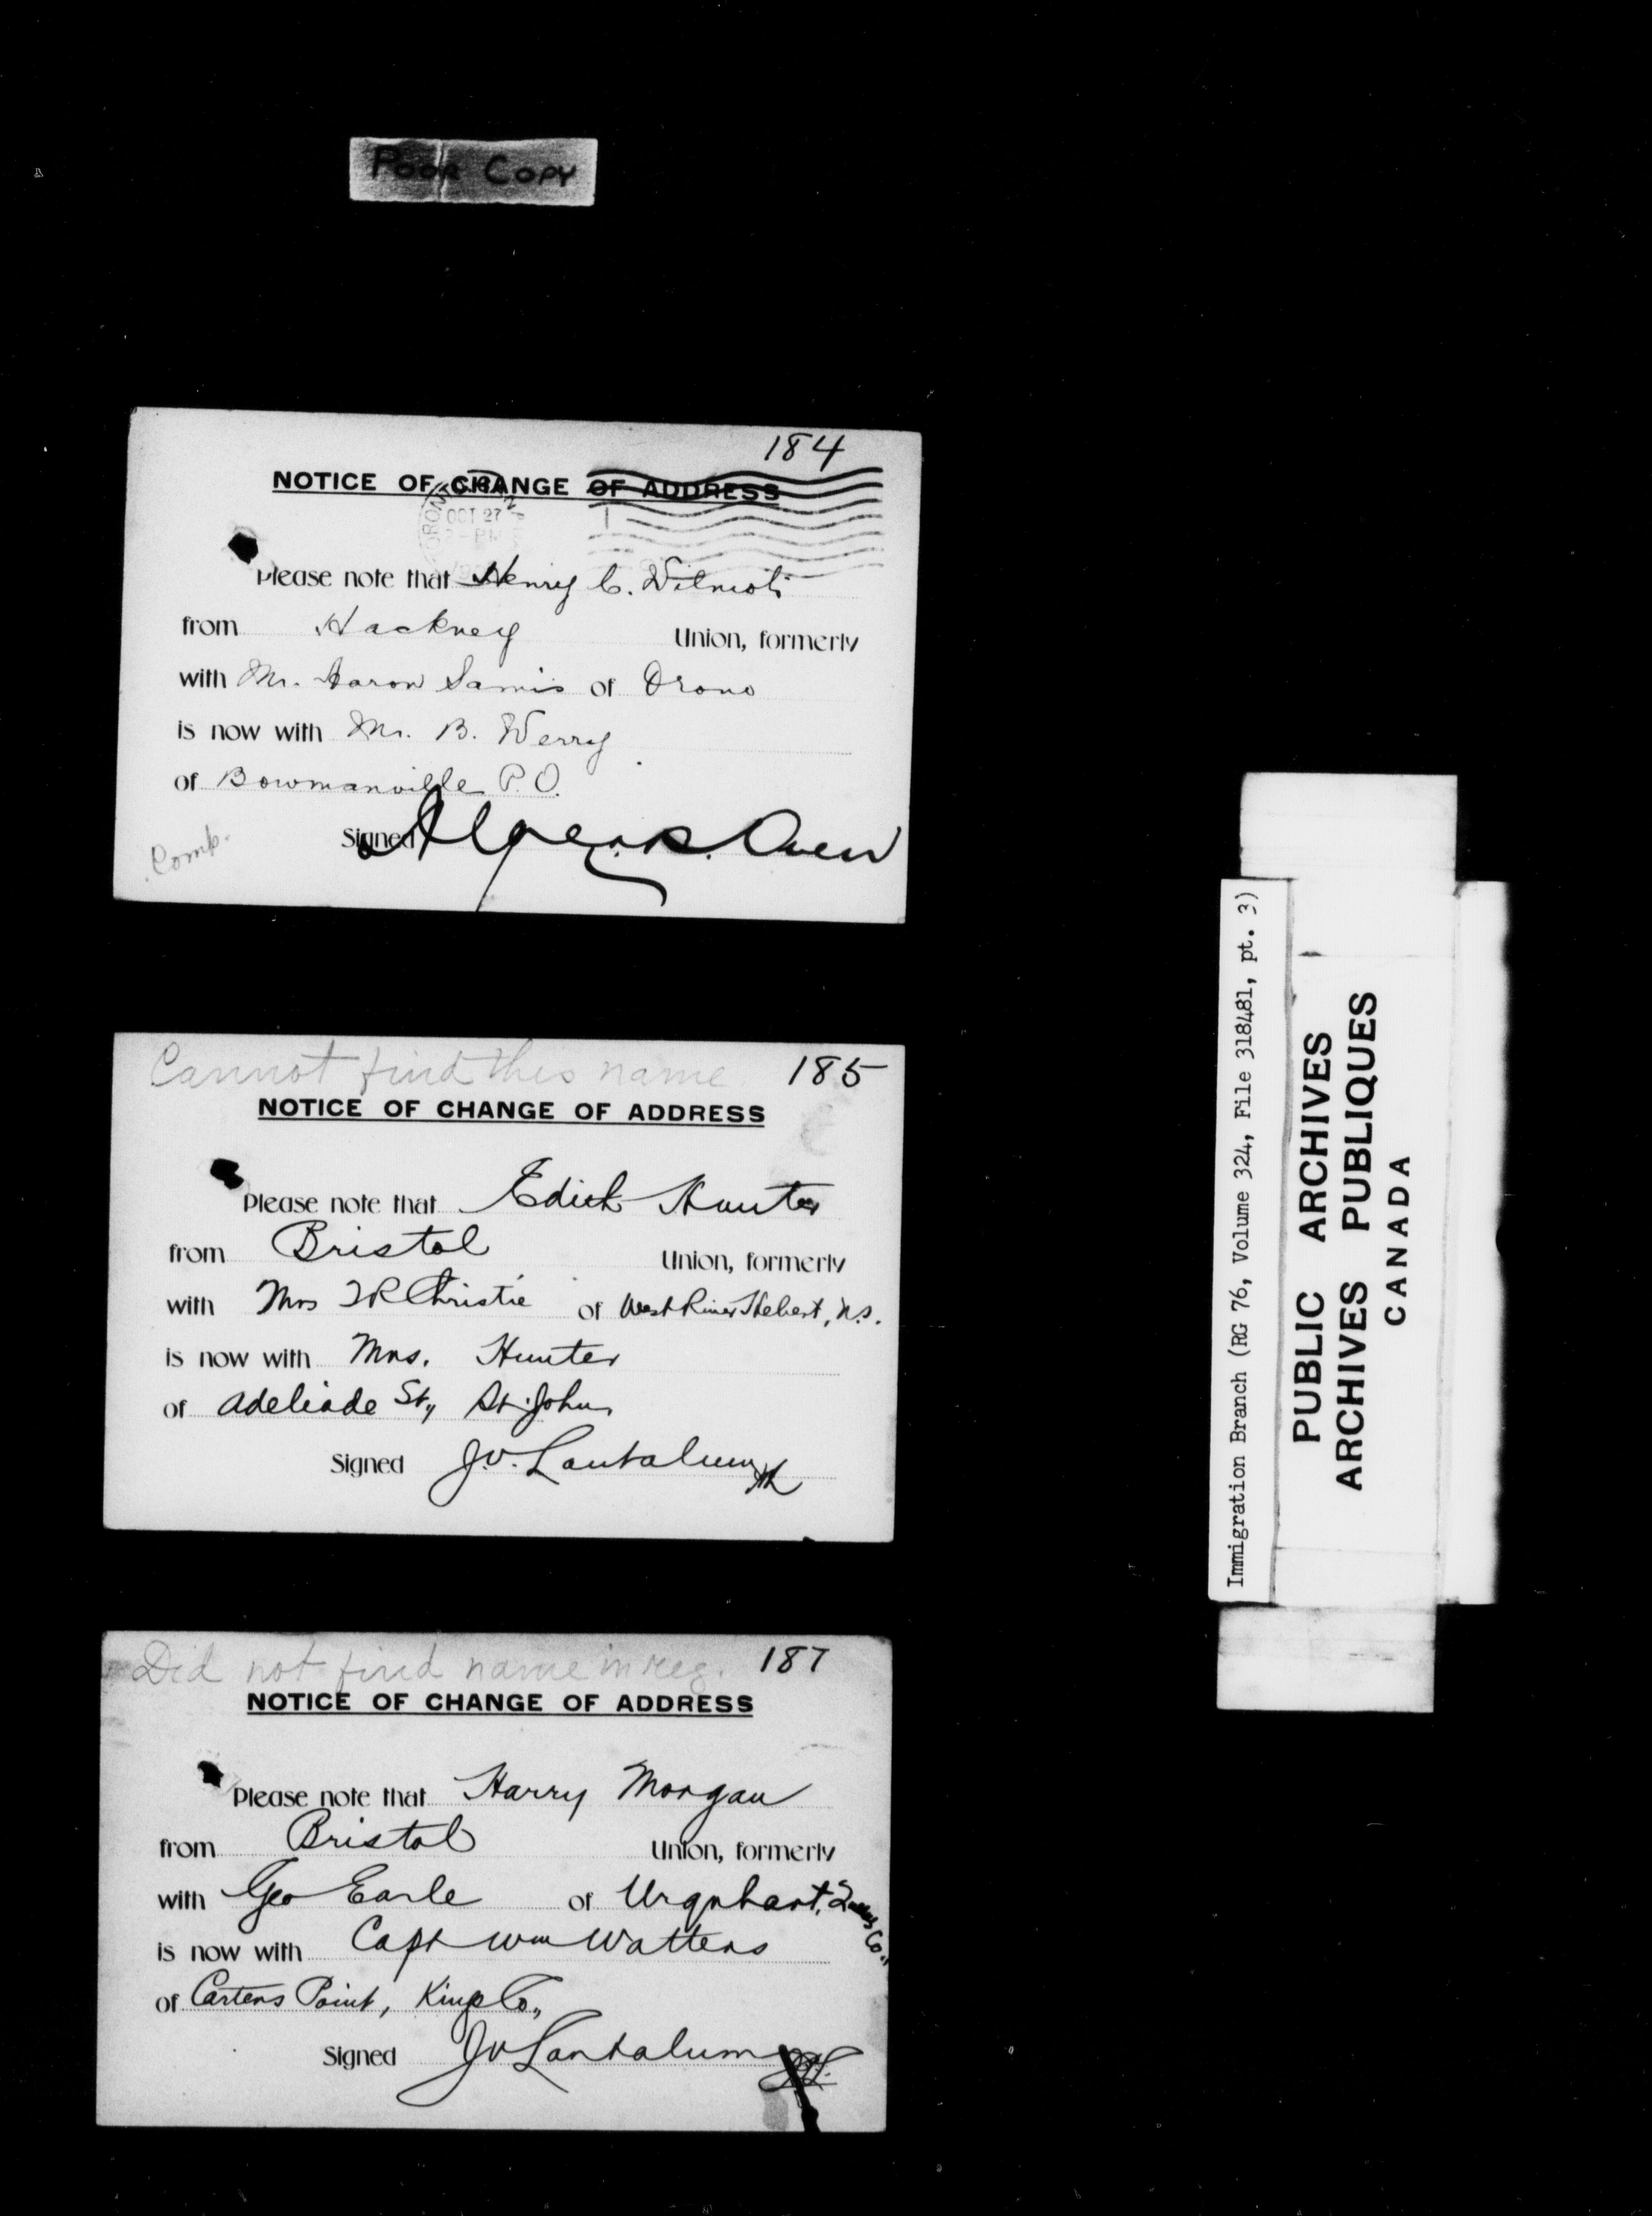 POOR COPY
184
NOTICE OF CHANGE OF ADDRESS
OCT 27
Please note that Henry C. Wilmot
from Hackney Union, formerly
with Mr. Aaron Samis of Orono
is now with Mr. B. Werry
of Bowmanville P.O.
Signed Owen
Comp.
Cannot find this name 185
NOTICE OF CHANGE OF ADDRESS
Please note that Edith Hunter
from Bristol Union, formerly
with Mrs Christie of West River Hebert, N.S.
is now with Mrs. Hunter
of Adeliade St, St. John
Signed J.V. Lantalum
Did not find name in reg. 187
NOTICE OF CHANGE OF ADDRESS
Please note that Harry Morgan
from Bristol Union, formerly
with Geo Earle of Urquhart, Co.
is now with Capt Wm Watters
of Carters Point, Kings Co.,
Signed JV Lantalum
Immigration Branch (RG 76, Volume 324, File 318481, pt. 3)
PUBLIC ARCHIVES
ARCHIVES PUBLIQUES
CANADA